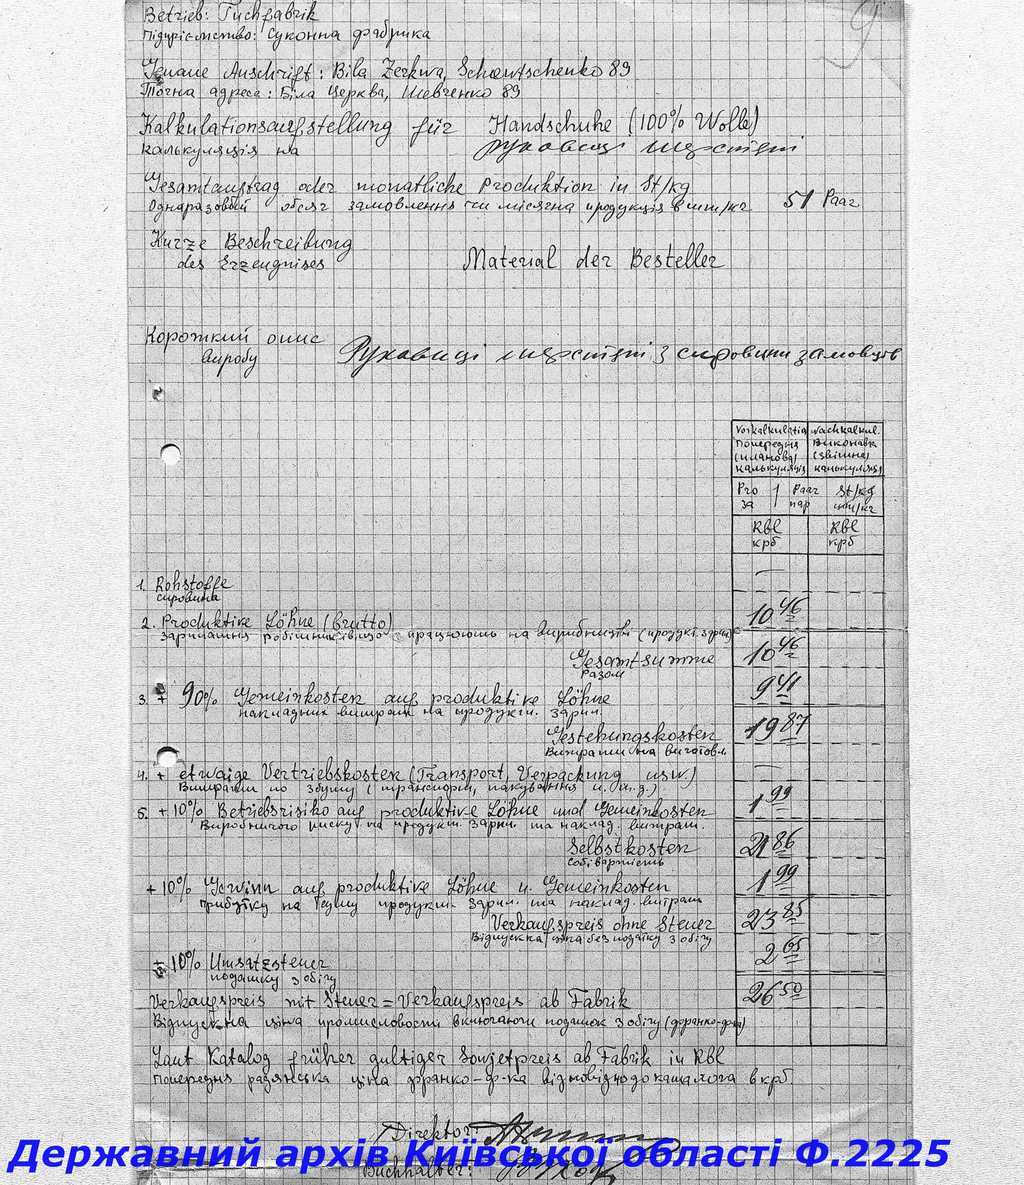 9
Betrieb: Tuchfabrik
Підприємство: Суконна фабрика
Genaue Anschrift: Bila Zerkwa, Schewtschenko 89
Точна адреса: Біла Церква, Шевченко 89
Kalkulationsaufstellung für Handschuhe (100% Wolle)
калькуляція на рукавиці шерстяні
Gesamtauftrag oder monatliche Produktion in St/kg
Одноразовый обсяг замовлення чи місячна продукція в шт/кг 51 Paar
Kurze Beschreibung
des Erzeugnises Material der Besteller
Короткий опис
виробу Рукавиці шерстяні з сировини замовців
Vorkalkulatio Nachkalkul.
Попередня Виконавча
(планова) (звітна)
калькуляція калькуляція
Pro 1 Paar St/kg
за пар шт/кг
Rbl Rbl
крб крб
1. Rohstoffe —
сировина
2. Produktive Löhne (brutto) 10 46
Зарплатня робітників що працюють на виробництві
Gesamtsumme 10 46
Разом
3. + 90% Gemeinkosten auf produktive Löhne 9 41
накладних витрат на продукт. зарпл.
Gestehungskosten 19 87
Витрати на виготовл.
4. + etwaige Vertriebskosten (Transport, Verpackung usw.) —
Витрати по збуту (транспорт, пакування и. т. д.)
5. + 10% Betriebsrisiko auf produktive Löhne und Gemeinkosten 1 99
Виробничого риску на продукт. зарпл. та наклад. витрат.
Selbstkosten 21 86
Собівартість
+ 10% Gewinn auf produktive Löhne u. Gemeinkosten 1 99
прибутку на суму продукт. зарпл. та наклад. витрат
Verkaufspreis ohne Steuer 23 85
Відпускна ціна без податку з обігу
+ 10% Umsatzsteuer 2 65
податку з обігу
Verkaufspreis mit Steuer = Verkaufspreis ab Fabrik 26 50
Відпускна ціна промисловости включаючи податок з обігу (франко-ф-ка)
Laut Katalog früher gultiger Sowjetpreis ab Fabrik in Rbl
попередня радянська ціна франко-ф-ка відповідно до каталога в крб.
Direktor:
Buchhalter:
Державний архів Київської області Ф.2225